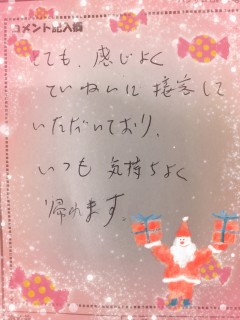 コメント記入欄
とても、感じよく
ていねいに接客して
いただいており、
いつも気持ちよく
帰れます。